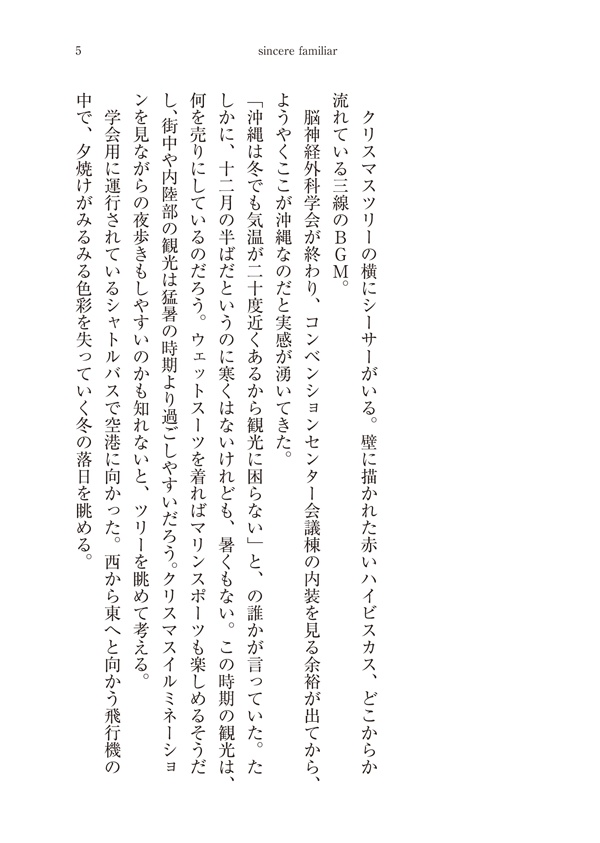 5
sincere familiar
クリスマスツリーの横にシーサーがいる。壁に描かれた赤いハイビスカス、どこからか
流れている三線のＢＧＭ。
脳神経外科学会が終わり、コンベンションセンター会議棟の内装を見る余裕が出てから、
ようやくここが沖縄なのだと実感が湧いてきた。
「沖縄は冬でも気温が二十度近くあるから観光に困らない」と、の誰かが言っていた。た
しかに、十二月の半ばだというのに寒くはないけれども、暑くもない。この時期の観光は、
何を売りにしているのだろう。ウェットスーツを着ればマリンスポーツも楽しめるそうだ
し、街中や内陸部の観光は猛暑の時期より過ごしやすいだろう。クリスマスイルミネーショ
ンを見ながらの夜歩きもしやすいのかも知れないと、ツリーを眺めて考える。
学会用に運行されているシャトルバスで空港に向かった。西から東へと向かう飛行機の
中で、夕焼けがみるみる色彩を失っていく冬の落日を眺める。